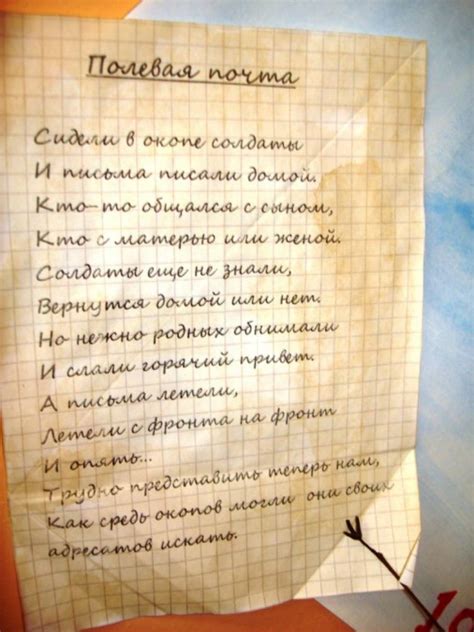 Полевая почта
Сидели в окопе солдаты
И письма писали домой.
Кто-то общался с сыном,
Кто с матерью или женой.
Солдаты еще не знали,
Вернутся домой или нет.
Но нежно родных обнимали
И слали горячий привет.
А письма летели,
Летели с фронта на фронт
И опять...
Трудно представить теперь нам,
Как средь окопов могли они своих
адресатов искать.